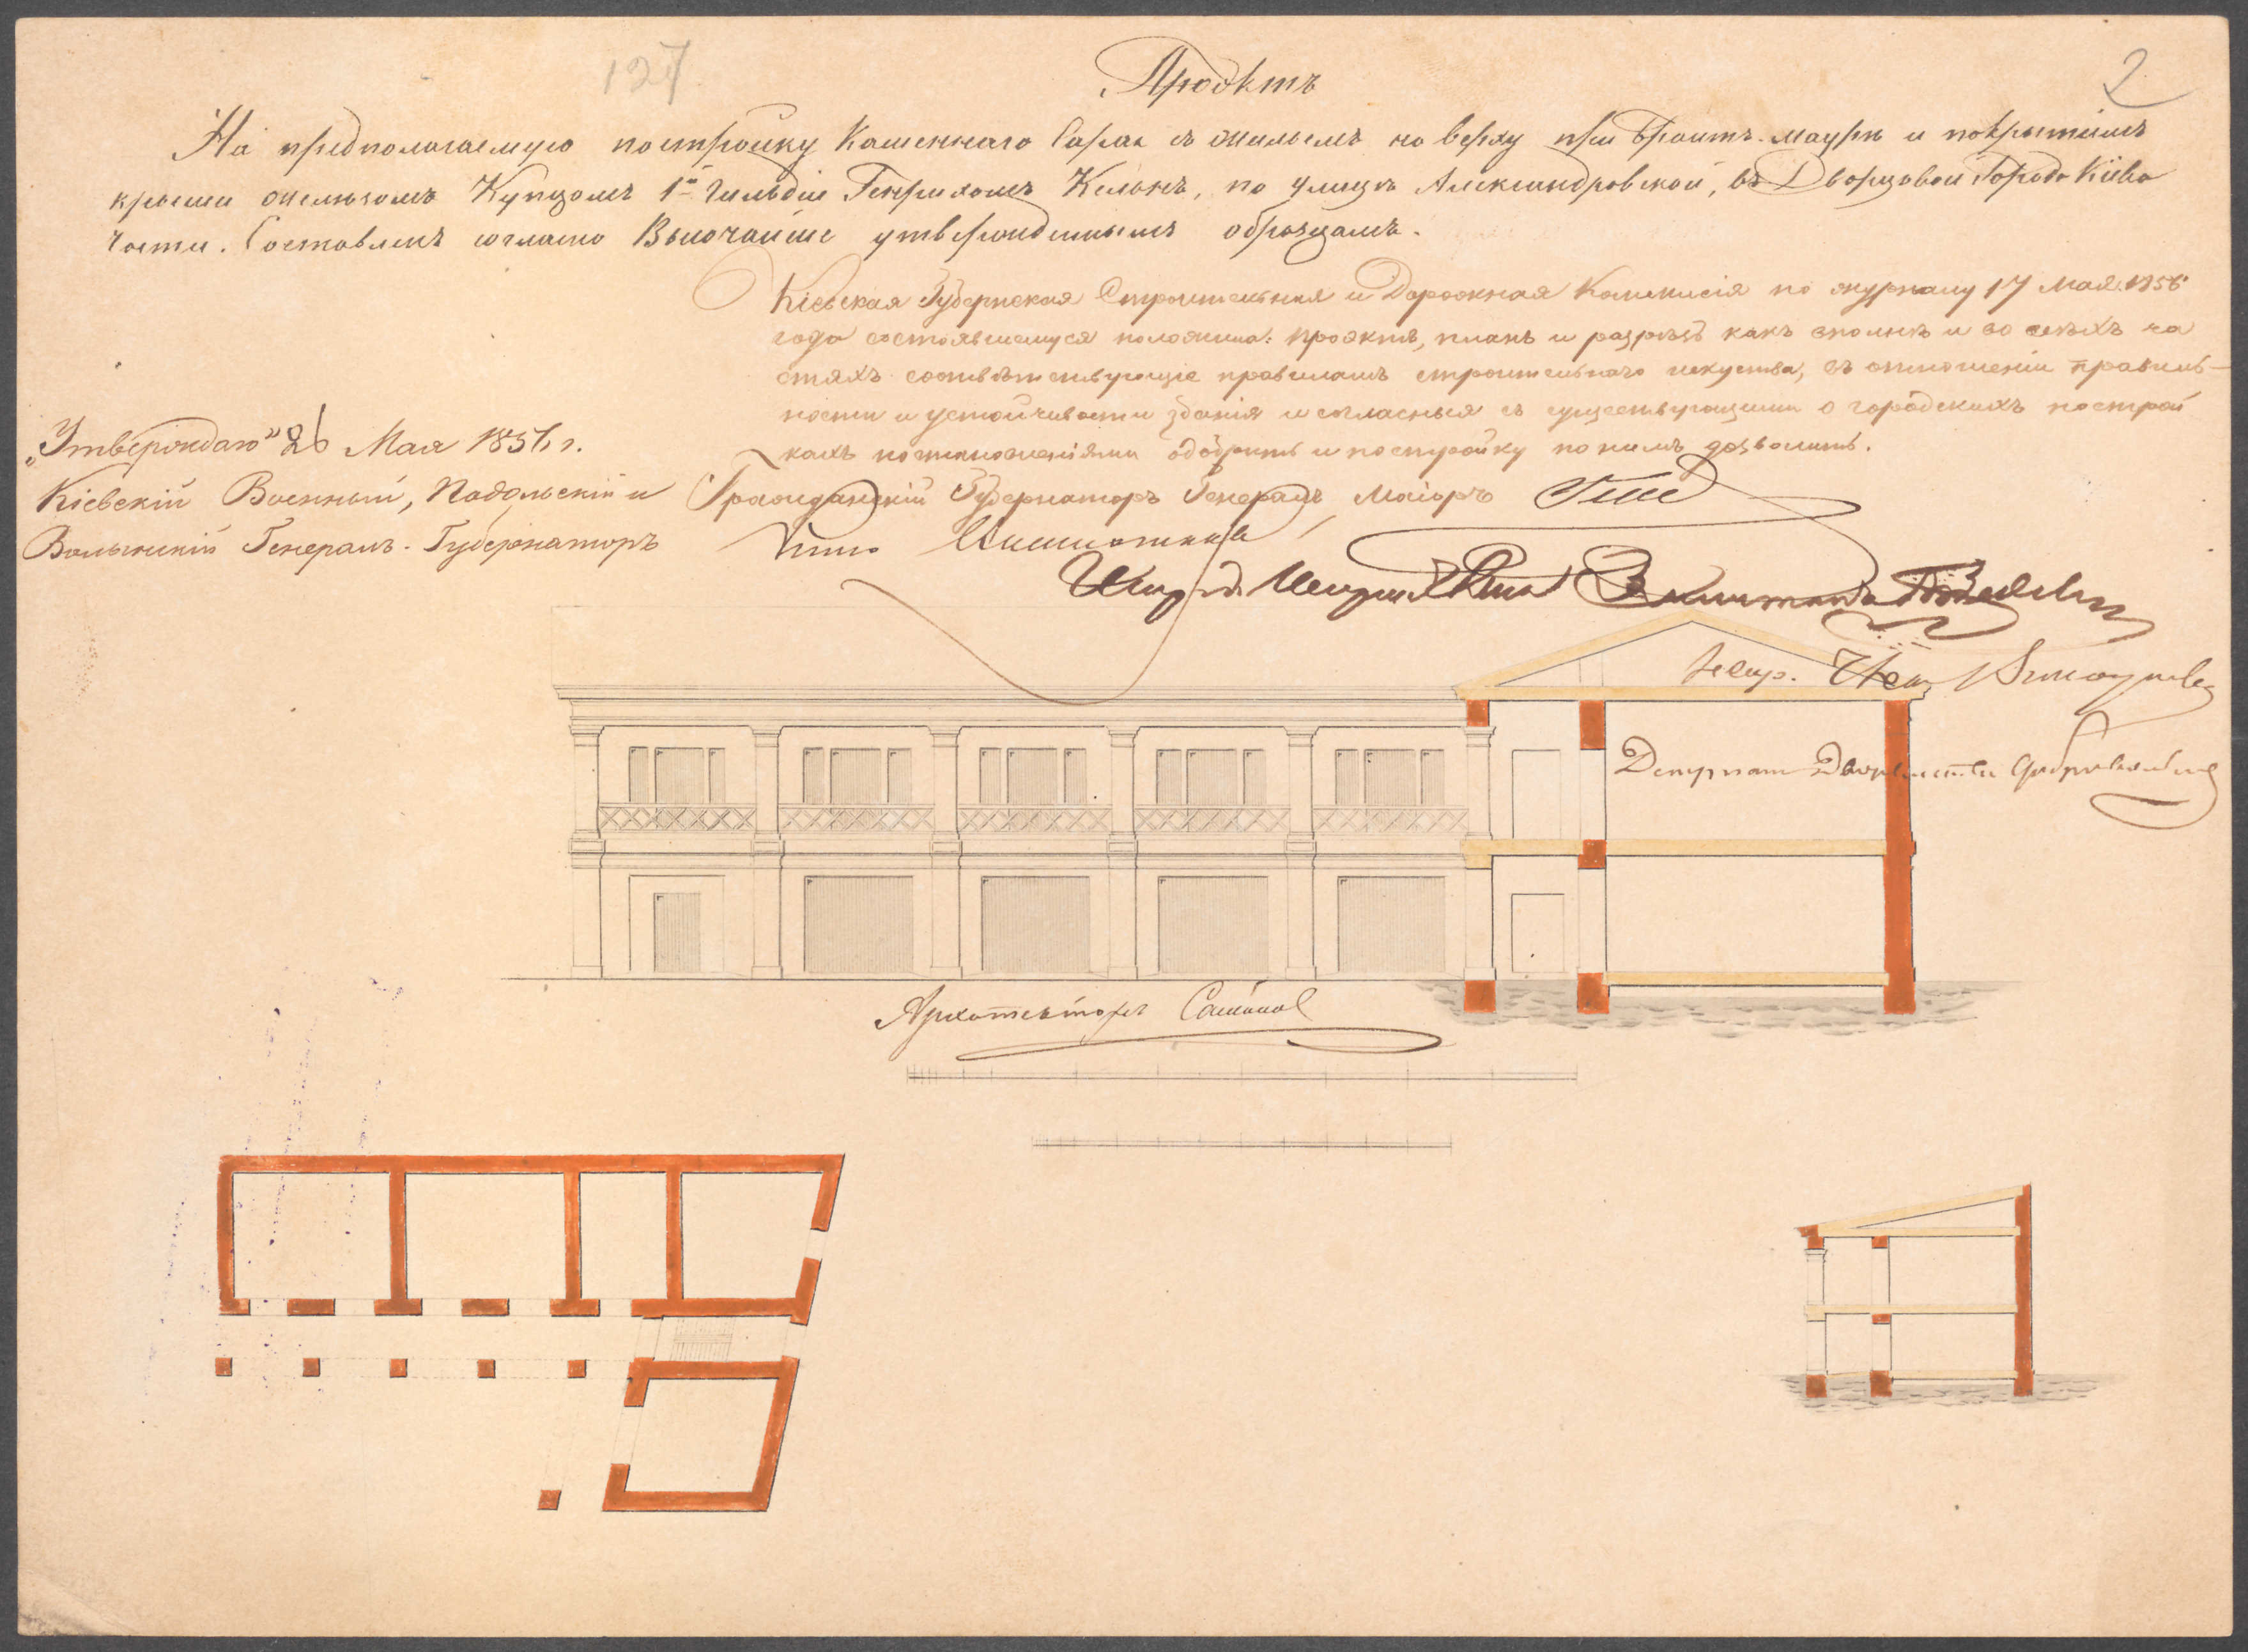 127
2
Проэктъ
На предполагаемую постройку Каменнаго Сарая съ жильемъ на верху при Брантъ-мауръ и покрытіемъ
крыши желѣзомъ Купцомъ 1й Гильдіи Генрихомъ по улицѣ Александровской, въ Дворцовой Города Кіева
части. Составленъ согласно Высочайше утвержденнымъ образцамъ.
Кіевская Губернская Строительная и Дорожная Коммисія по журналу 17 Мая 1856
года состоявшемуся положила: проэктъ, планъ и разрѣзъ какъ вполнѣ и во всѣхъ ча
стяхъ соотвѣтствующіе правиламъ строительнаго искуства, въ отношеніи правиль-
ности и устойчивости зданія и согласныя съ существующими о городскихъ построй
кахъ постановленіями одобрить и постройку по нимъ дозволить.
„Утверждаю" 26 Мая 1856 г.
Кіевскій Военный, Подольскій и
Волынскій Генералъ-Губернаторъ
Гражданскій Губернаторъ Генералъ Маіоръ Гессе
Депутат Дворянства
Архитекторъ